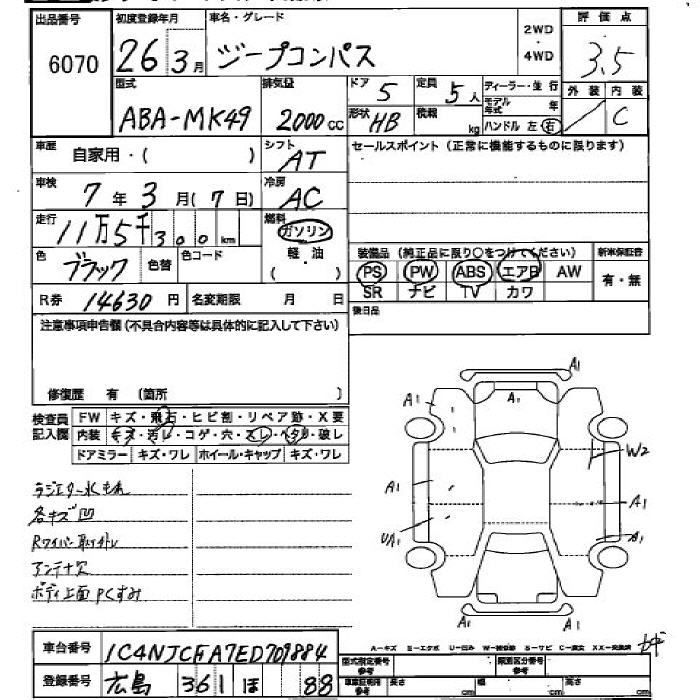 出品番号 初度登録年月 車名・グレード 2WD・4WD 評価点
6070 26 3月 ジープコンパス 3.5
型式 排気量 ドア 5 定員 5人 ディーラー・並行 外装 内装
ABA-MK49 2000cc 形状 HB 積載 kg モデル年式 年 ハンドル 左 右 / C
車歴 自家用・( ) シフト AT セールスポイント(正常に機能するものに限ります)
車検 7年 3月(7日) 冷房 AC
走行 11万5千300km 燃料 ガソリン
軽・油
( )
色 ブラック 色替 色コード
装備品(純正品に限り○をつけてください) 新車保証書
PS PW ABS エアB AW 有・無
SR ナビ TV カワ
R券 14630円 名変期限 月 日 後日品
注意事項申告欄(不具合内容等は具体的に記入して下さい)
修復歴 有(箇所 )
検査員記入欄 FW キズ・飛石・ヒビ割・リペア跡・X要
内装 キズ・汚レ・コゲ・穴・スレ・ヘタリ・破レ
ドアミラー キズ・ワレ ホイール・キャップ キズ・ワレ
ラジエター水もれ
各キズ凹
Rワイパー取外レ
アンテナ欠
ボディ上面PCすみ
A1
A1 A1
W2
A1 A1
UA1 A1
A1 A1
車台番号 1C4NJCFA7ED709884
登録番号 広島 361 ほ 88
A-キズ E-エクボ U-凹み W-補修跡 S-サビ C-腐食 XX-交換済
型式指定番号 参考 類別区分番号 参考
車庫証明用 参考 長さ cm 幅 cm 高さ cm